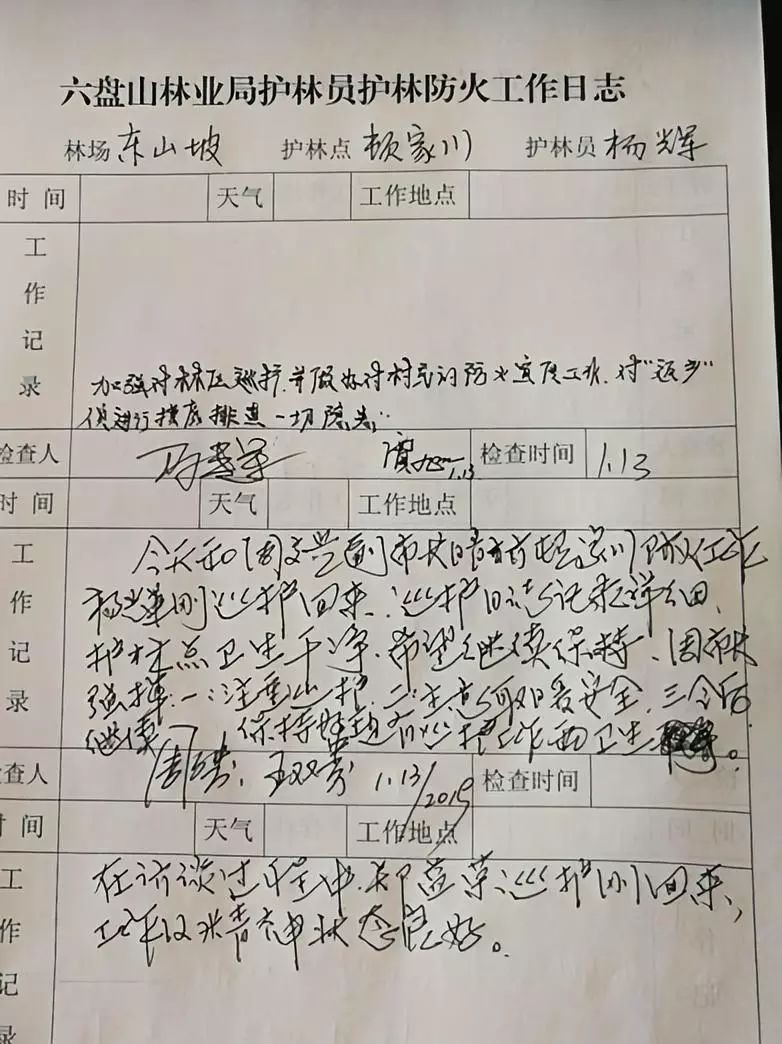 六盘山林业局护林员护林防火工作日志
林场 东山坡 护林点 顿家川 护林员 杨辉军
时间 天气 工作地点
工作记录
加强对林区巡护,并做好对村民的防火宣传工作.对"返乡"
员进行摸底排查一切隐患.
检查人 1.13 检查时间 1.13
时间 天气 工作地点
工作记录
今天和周文兴副市长暗访顿家川
杨辉军刚巡护回来、巡护日志记录详细、
护林点卫生干净.希望继续保持、周市长
强调:一:注重巡护.二:注意何日暑安全.三今后
继续 保持好现有巡护工作和卫生
查人 1.13/2019 检查时间
时间 天气 工作地点
工作记录
在访谈过程中. 巡护刚回来,
工作及 精神状态良好。